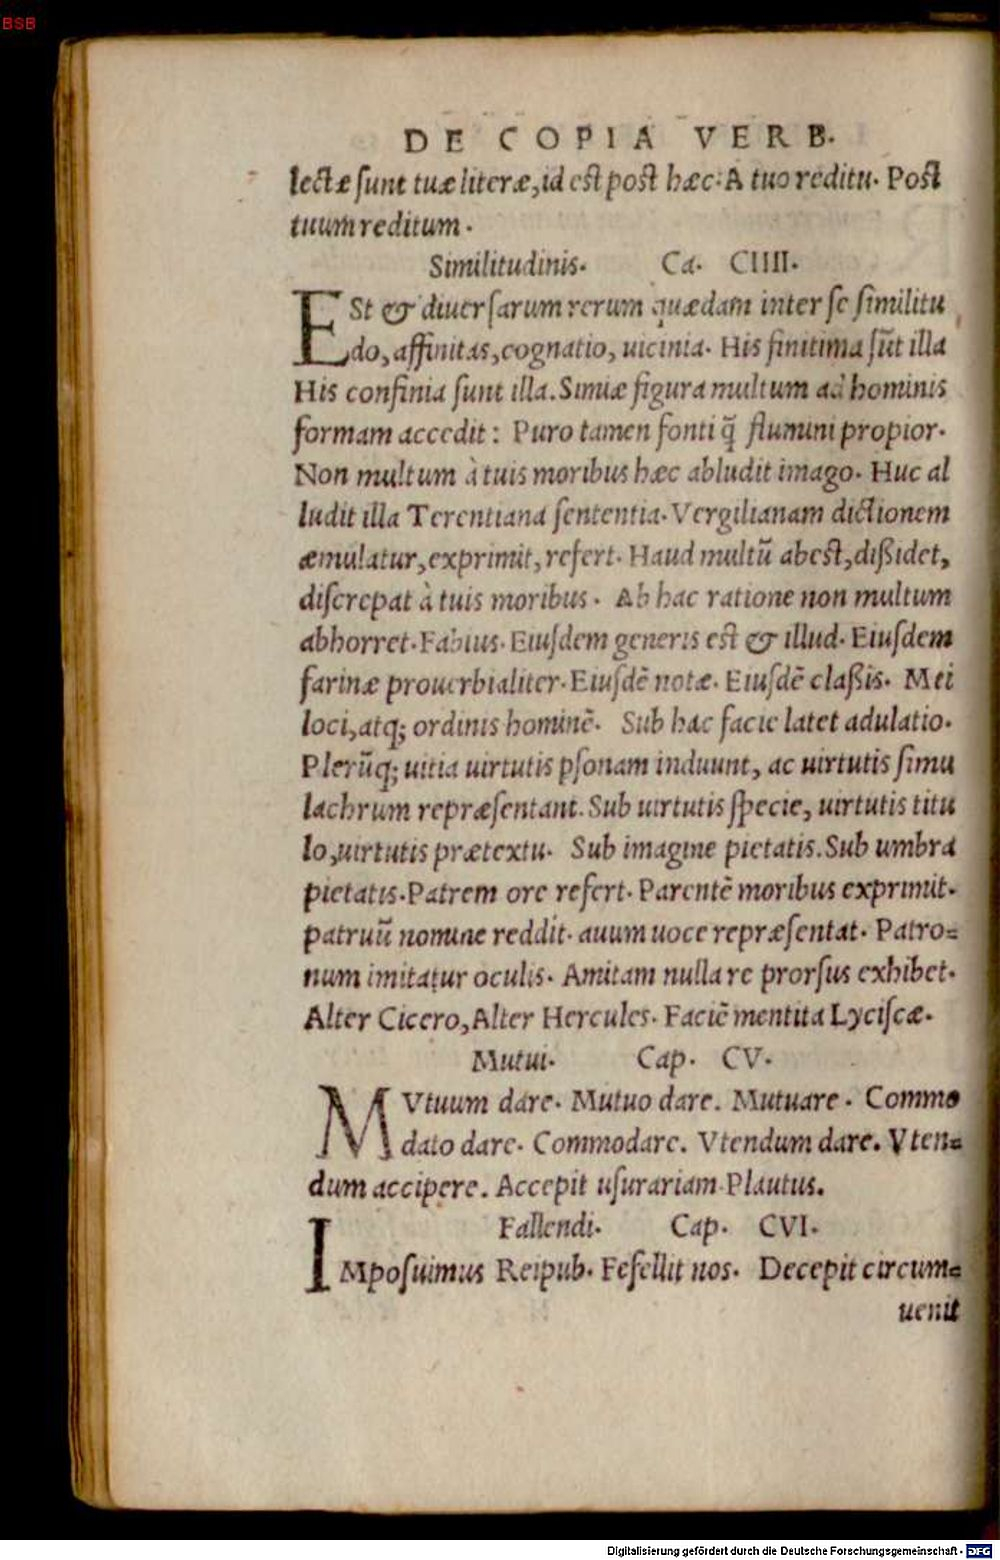 BSB
DE COPIA VERB.
lectæ sunt tuæ literæ, id est post hæc: A tuo reditu. Post
tuum reditum.
Similitudinis. Ca. CIIII.
ESt & diuersarum rerum quædam inter se similitu
do, affinitas, cognatio, uicinia. His finitima sũt illa
His confinia sunt illa. Simiæ figura multum ad hominis
formam accedit: Puro tamen fonti q̃ flumini propior.
Non multum à tuis moribus hæc abludit imago. Huc al
ludit illa Terentiana sententia. Vergilianam dictionem
æmulatur, exprimit, refert. Haud multũ abest, dißidet,
discrepat à tuis moribus. Ab hac ratione non multum
abhorret. Fabius. Eiusdem generis est & illud. Eiusdem
farinæ prouerbialiter. Eiusdẽ notæ. Eiusdẽ claßis. Mei
loci, atq; ordinis hominẽ. Sub hac facie latet adulatio.
Plerũq; uitia uirtutis psonam induunt, ac uirtutis simu
lachrum repræsentant. Sub uirtutis specie, uirtutis titu
lo, uirtutis prætextu. Sub imagine pietatis. Sub umbra
pietatis. Patrem ore refert. Parentẽ moribus exprimit.
patruũ nomine reddit. auum uoce repræsentat. Patro=
num imitatur oculis. Amitam nulla re prorsus exhibet.
Alter Cicero, Alter Hercules. Faciẽ mentita Lyciscæ.
Mutui. Cap. CV.
MVtuum dare. Mutuo dare. Mutuare. Commo
dato dare. Commodare. Vtendum dare. Vten=
dum accipere. Accepit usurariam. Plautus.
Fallendi. Cap. CVI.
IMposuimus Reipub. Fefellit nos. Decepit circum=
uenit
Digitalisierung gefördert durch die Deutsche Forschungsgemeinschaft - DFG